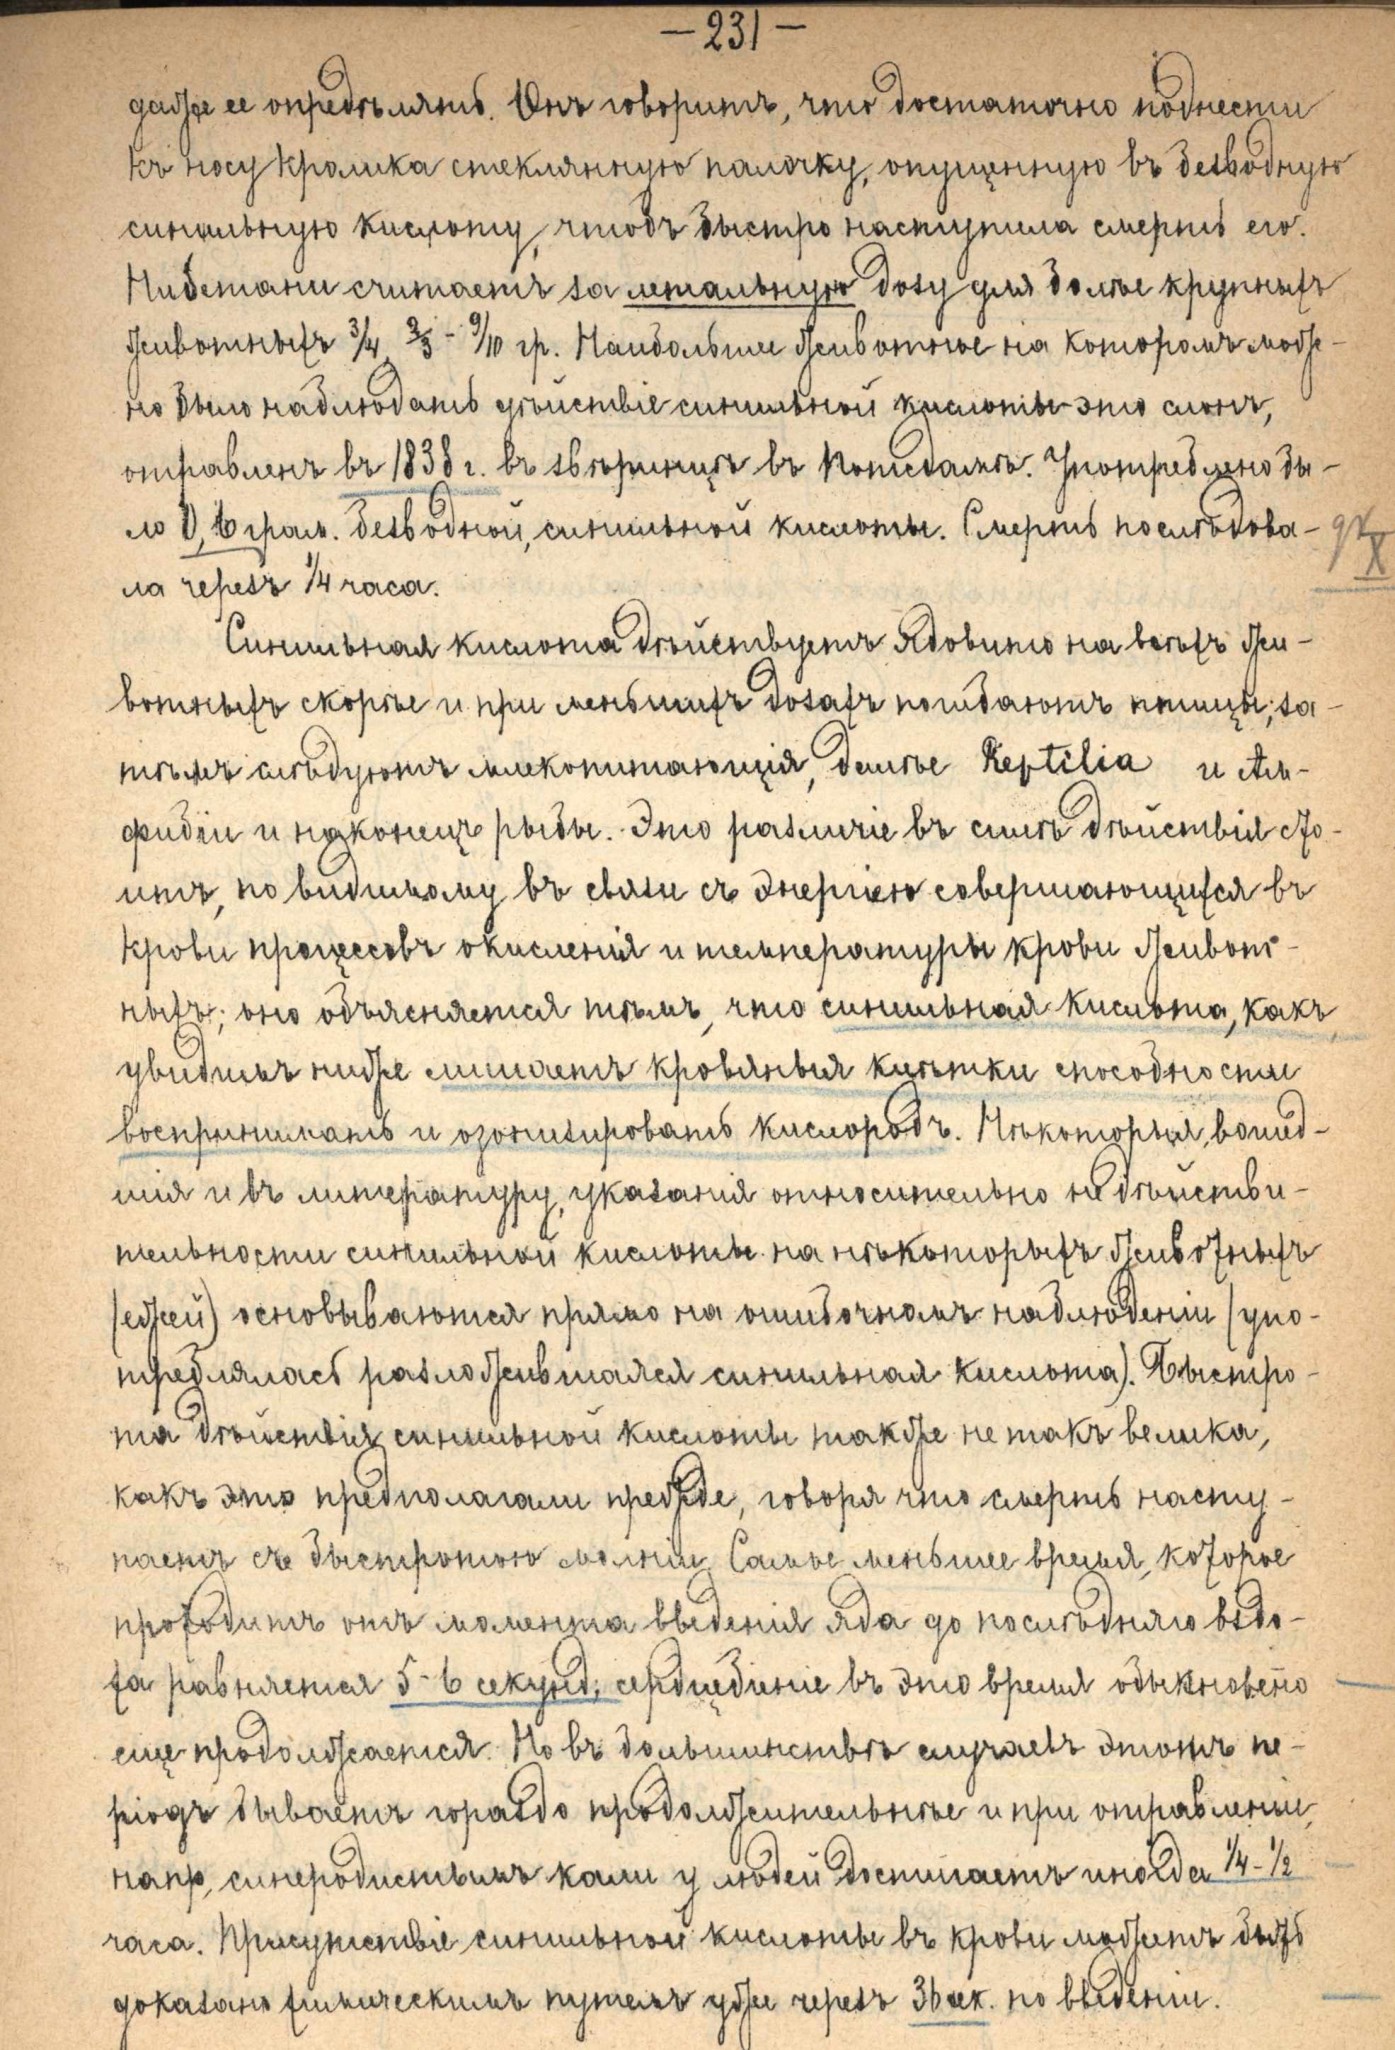 — 231 —
даже ее опредѣлять. Онъ говоритъ, что достаточно поднести
къ носу кролика стеклянную палочку, опущенную въ безводную
синильную кислоту, чтобъ быстро наступила смерть его.
считаетъ за летальную дозу для болѣе крупныхъ
животныхъ 3/4 2/3 - 9/10 гр. Наибольшее животное на которомъ мож-
но было наблюдать дѣйствіе синильной кислоты это слонъ,
отравленъ въ 1838 г. въ звѣринцѣ въ Потсдамѣ. Употреблено бы-
ло 0,6 грам. безводной, синильной кислоты. Смерть послѣдова-
ла черезъ 1/4 часа.
Синильная кислота дѣйствуетъ ядовито на всѣхъ жи-
вотныхъ скорѣе и при меньшихъ дозахъ погибаютъ птицы; за-
тѣмъ слѣдуютъ млекопитающія, далѣе Reptilia и Ам-
фибіи и наконецъ рыбы. Это различіе въ силѣ дѣйствія сто-
итъ, по видимому въ связи съ энергіею совершающихся въ
крови процессовъ окисленія и температуры крови живот-
ныхъ; оно объясняется тѣмъ, что синильная кислота, какъ
увидимъ ниже лишаетъ кровяныя клѣтки способности
воспринимать и озонизировать кислородъ. Нѣкоторыя, вошед-
шія и въ литературу, указанія относительно недѣйстви-
тельности синильной кислоты на нѣкоторыхъ животныхъ
(ежей) основываются прямо на ошибочномъ наблюденіи (упо-
треблялась разложившаяся синильная кислота). Быстро-
та дѣйствія синильной кислоты также не такъ велика,
какъ это предполагали прежде, говоря что смерть насту-
паетъ съ быстротою молніи. Самое меньшее время, которое
проходитъ отъ момента введенія яда до послѣдняго вздо-
ха равняется 5-6 секунд; сердцебіеніе въ это время обыкновено
еще продолжается. Но въ большинствѣ случаевъ этотъ пе-
ріодъ бываетъ гораздо продолжительнѣе и при отравленіи,
напр, синеродистымъ кали у людей достигаетъ иногда 1/4 - 1/2
часа. Присутствіе синильной кислоты въ крови можетъ быть
доказано химическимъ путемъ уже черезъ 36 сек. по введеніи.